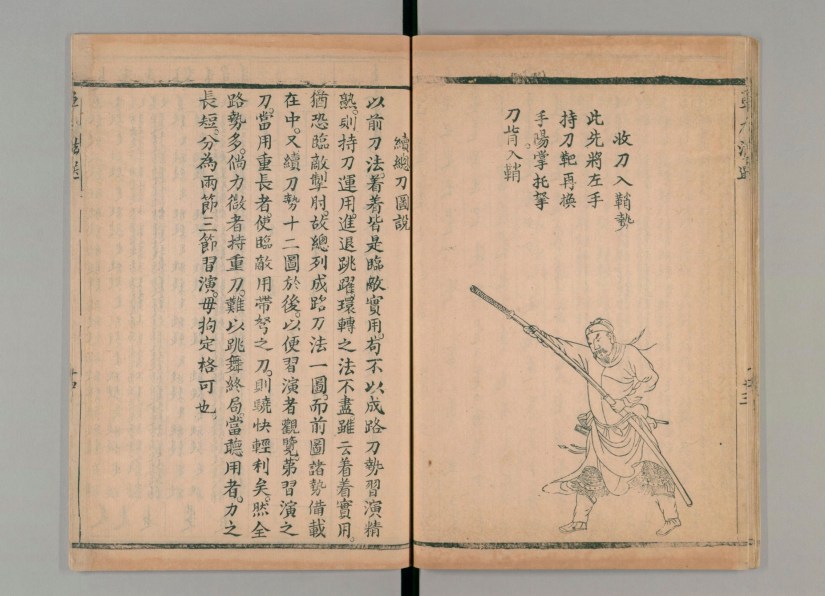 收刀入鞘勢
此先將左手
持刀靶再換
手陽掌托挐
刀背入鞘
續總刀圖說
以前刀法着着皆是臨敵實用苟不以成路刀勢習演精
熟則持刀運用進退跳躍環轉之法不盡雖云着着實用
猶恐臨敵掣肘故總列成路刀法一圖而前圖諸勢備載
在中又續刀勢十二圖於後以便習演者觀覽第習演之
刀當用重長者使臨敵用帶弩之刀則驍快輕利矣然全
路勢多倘力微者持重刀難以跳舞終局當聽用者力之
長短分為兩節三節習演毋拘定格可也